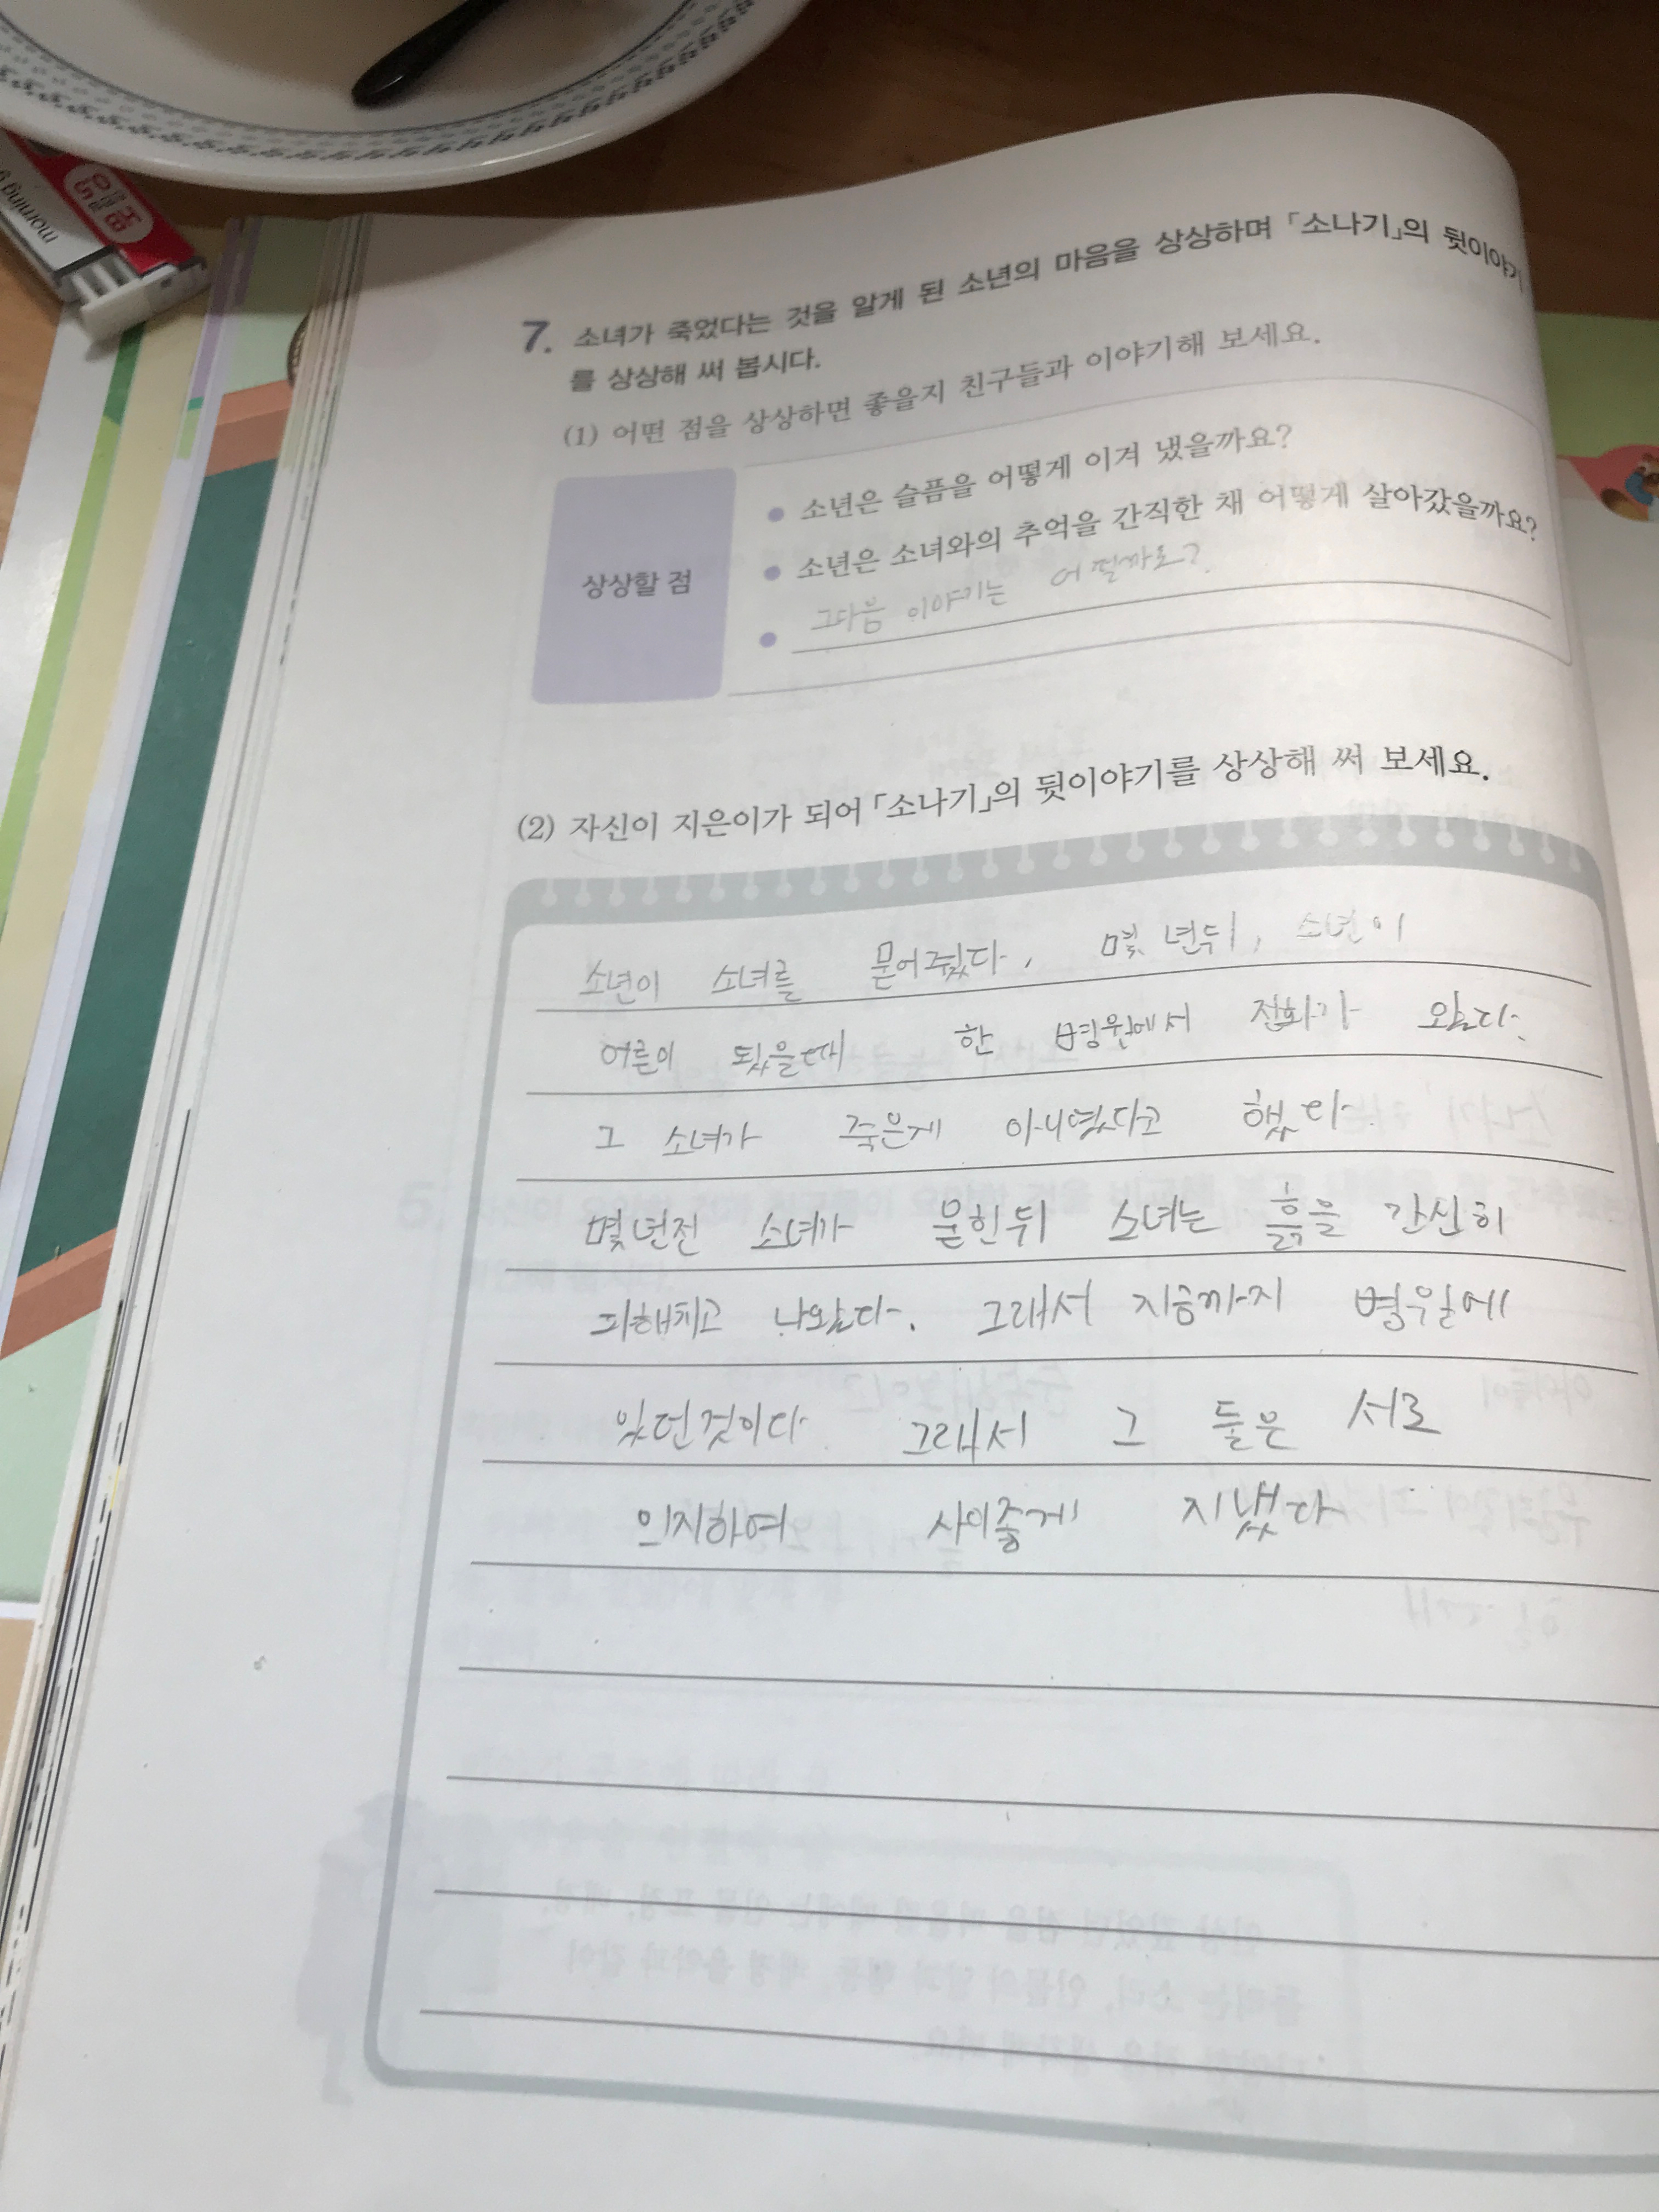 morning
7. 소녀가 죽었다는 것을 알게 된 소년의 마음을 상상하며 「소나기」의 뒷이야기
를 상상해 써 봅시다.
(1) 어떤 점을 상상하면 좋을지 친구들과 이야기해 보세요.
상상할 점
• 소년은 슬픔을 어떻게 이겨 냈을까요?
• 소년은 소녀와의 추억을 간직한 채 어떻게 살아갔을까요?
• 그다음 이야기는 어떨까요?
(2) 자신이 지은이가 되어 「소나기」의 뒷이야기를 상상해 써 보세요.
소년이 소녀를 묻어줬다, 몇 년뒤, 소년이
어른이 됬을때 한 병원에서 전화가 왔다.
그 소녀가 죽은게 아니였다고 했다.
몇년전 소녀가 묻힌뒤 소녀는 흙을 간신히
파해치고 나왔다. 그래서 지금까지 병원에
있던것이다 그래서 그 둘은 서로
의지하여 사이좋게 지냈다